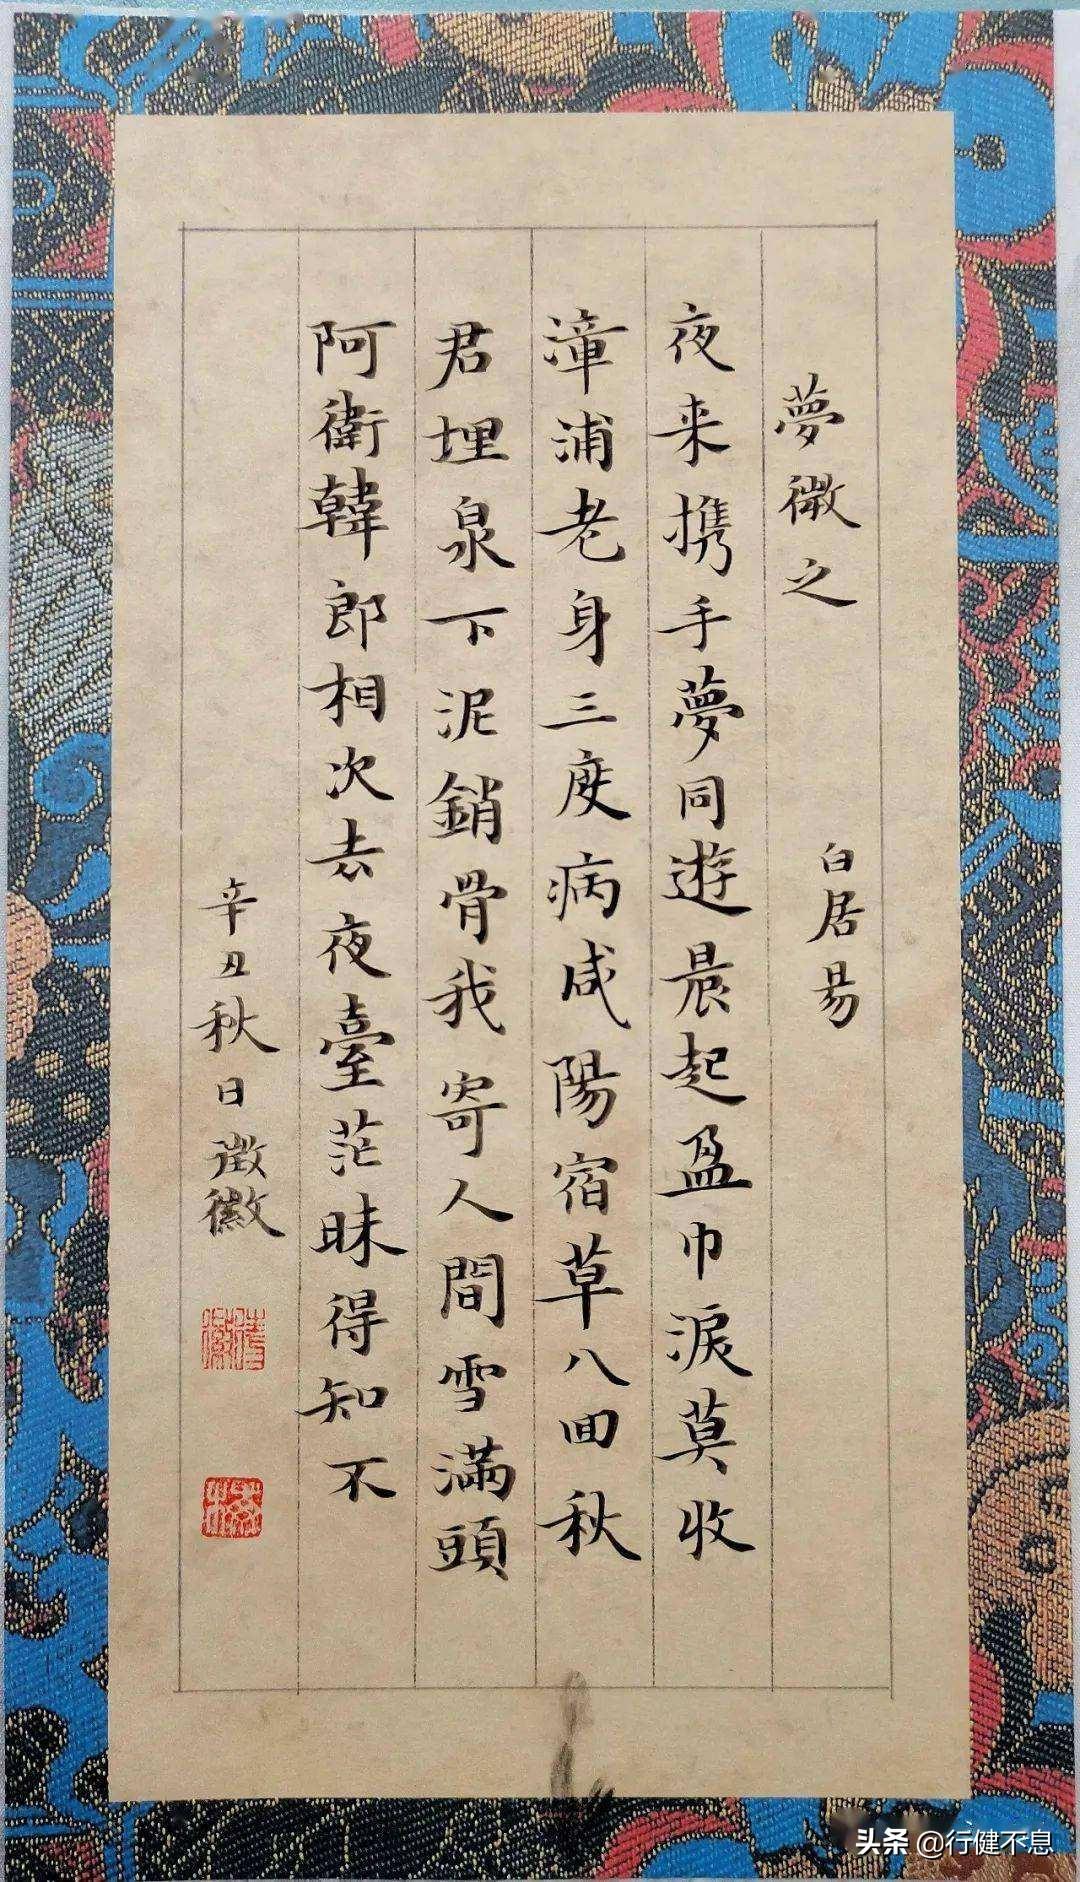 夢微之
白居易
夜来携手夢同遊晨起盈巾淚莫收
漳浦老身三度病咸陽宿草八回秋
君埋泉下泥銷骨我寄人間雪滿頭
阿衛韓郎相次去夜臺茫昧得知不
辛丑秋日
头条 @行健不息